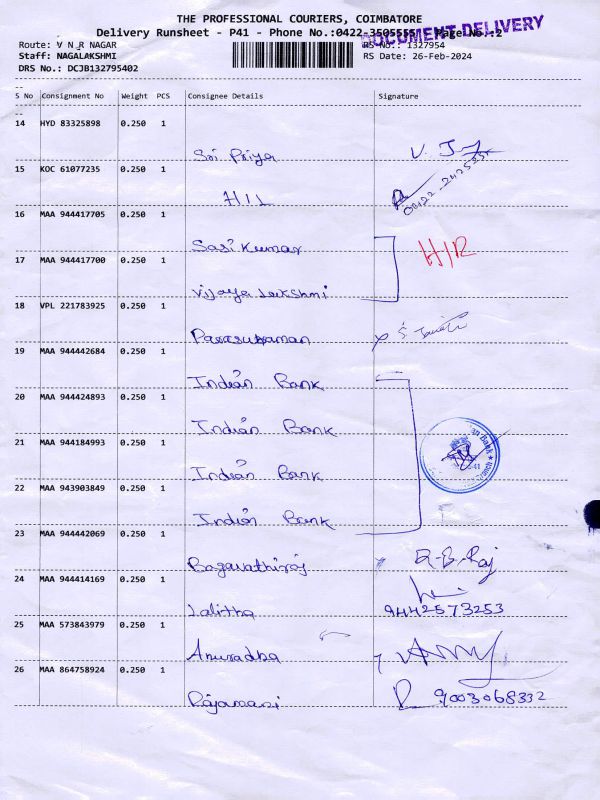 THE PROFESSIONAL COURIERS, COIMBATORE
Delivery Runsheet - P41 - Phone No.:0422-3505555 Page No.:2
DOCUMENT DELIVERY
Route: V N R NAGAR
RS No.: 1327954
Staff: NAGALAKSHMI
RS Date: 26-Feb-2024
DRS No.: DCJB132795402
S No Consignment No Weight PCS Consignee Details Signature
14 HYD 83325898 0.250 1
Sri Priya
15 KOC 61077235 0.250 1
HIL
16 MAA 944417705 0.250 1
Sasi Kumar H/R
17 MAA 944417700 0.250 1
Vijaya Lakshmi
18 VPL 221783925 0.250 1
Parasuraman
19 MAA 944442684 0.250 1
Indian Bank
20 MAA 944424893 0.250 1
Indian Bank
21 MAA 944184993 0.250 1
Indian Bank
22 MAA 943903849 0.250 1
Indian Bank
23 MAA 944442069 0.250 1
Bagavathiraj
24 MAA 944414169 0.250 1
Lalitha 9442573253
25 MAA 573843979 0.250 1
Anuradha
26 MAA 864758924 0.250 1
Rajamani 9003068332